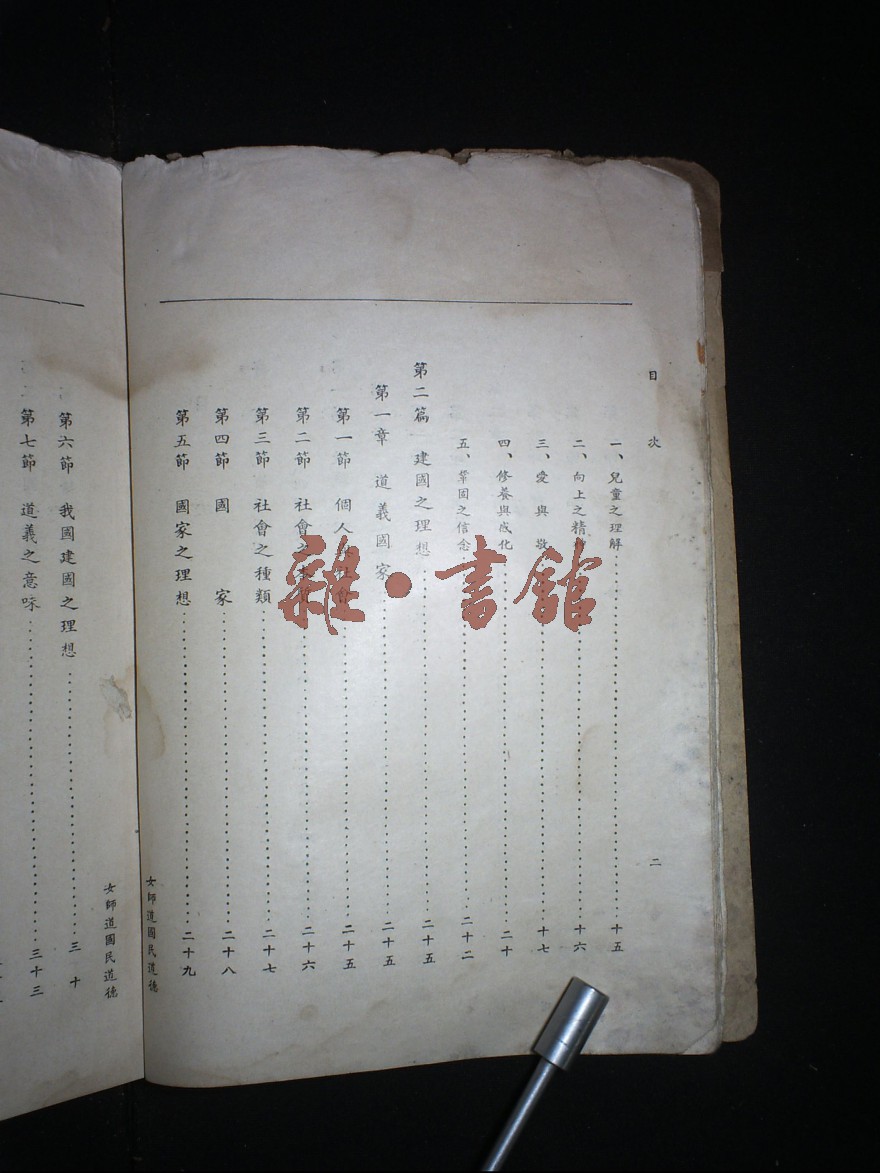 目次
一、兒童之理解 十五
二、向上之精 十六
三、愛與敬 十七
四、修養與感化 二十
五、鞏固之信念 二十二
第二篇 建國之理想 二十五
第一章 道義國家 二十五
第一節 個人 社會 二十五
第二節 社會之 二十六
第三節 社會之種類 二十七
第四節 國家 二十八
第五節 國家之理想 二十九
二
女師道國民道德
第六節 我國建國之理想 三十
第七節 道義之意味 三十三
女師道國民道德
雜·書館